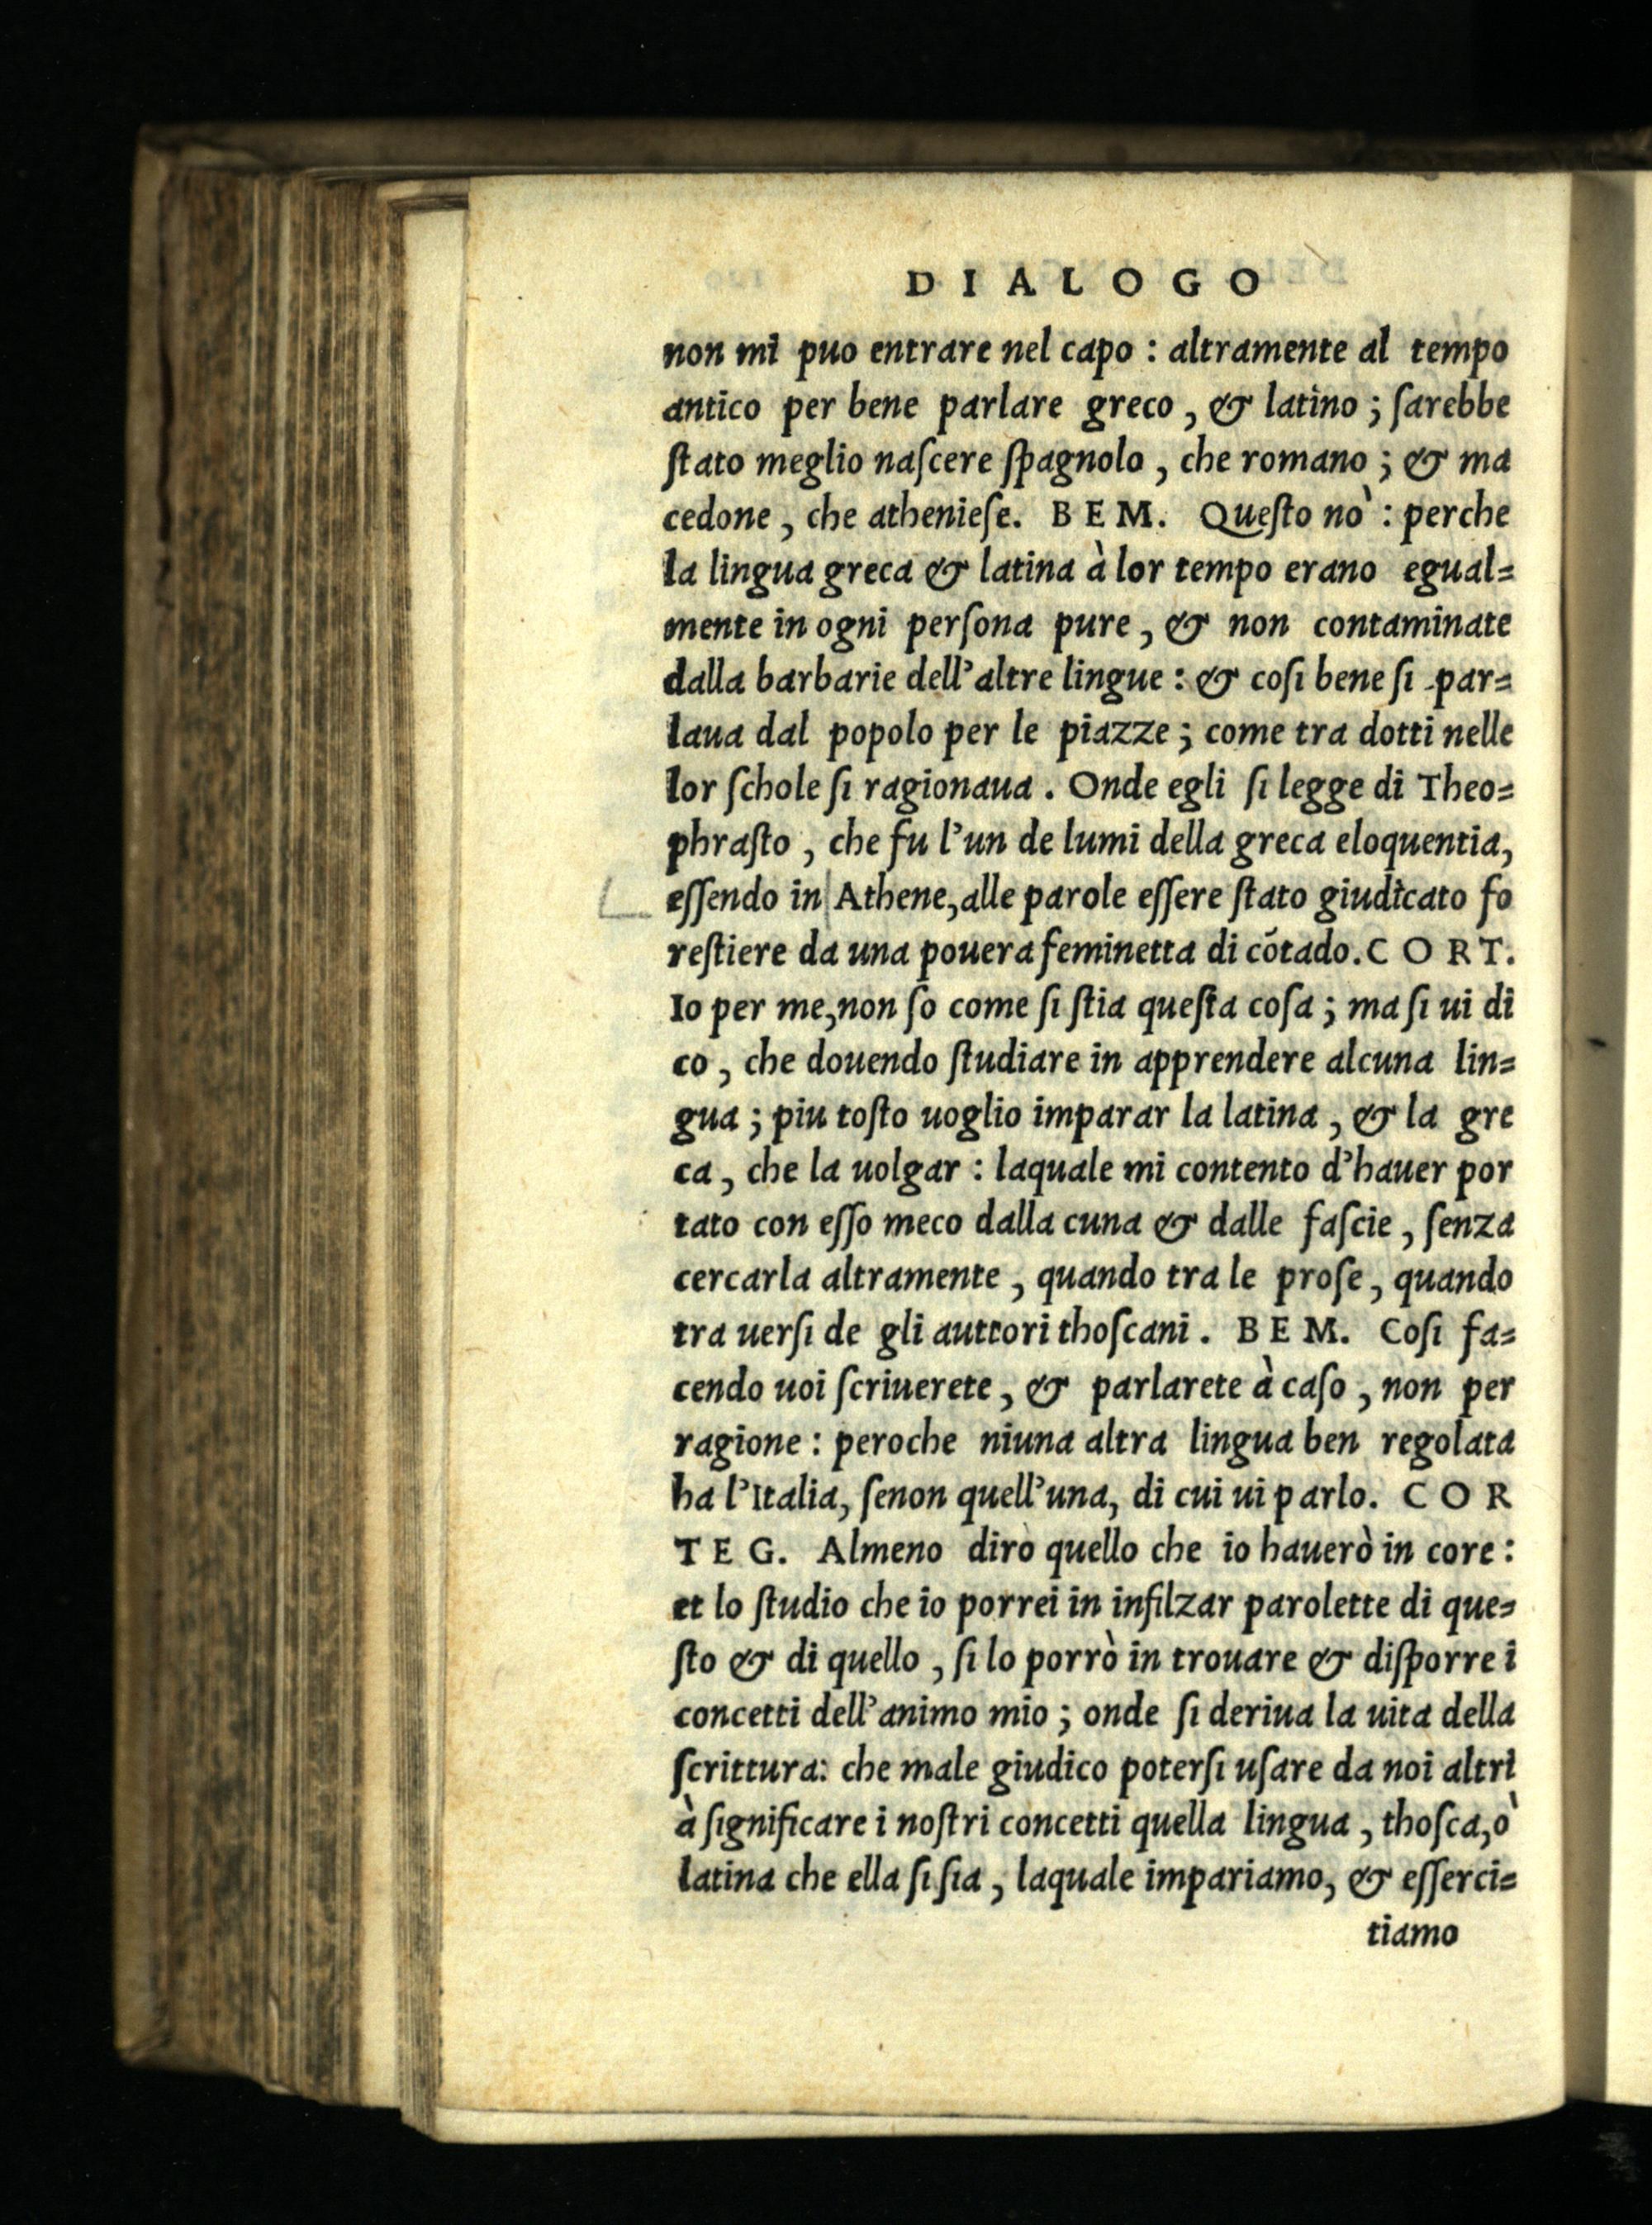 DIALOGO
non mi puo entrare nel capo : altramente al tempo
antico per bene parlare greco, & latino ; ſarebbe
ſtato meglio naſcere ſpagnolo, che romano ; & ma
cedone, che athenieſe. BEM. Queſto nò : perche
la lingua greca & latina à lor tempo erano egual=
mente in ogni perſona pure, & non contaminate
dalla barbarie dell'altre lingue : & coſi bene ſi par=
laua dal popolo per le piazze ; come tra dotti nelle
lor ſchole ſi ragionaua. Onde egli ſi legge di Theo=
phraſto, che fu l'un de lumi della greca eloquentia,
eſſendo in Athene, alle parole eſſere ſtato giudicato fo
reſtiere da una pouera feminetta di cōtado. CORT.
Io per me, non ſo come ſi ſtia queſta coſa ; ma ſi ui di
co, che douendo ſtudiare in apprendere alcuna lin=
gua ; piu toſto uoglio imparar la latina, & la gre
ca, che la uolgar : laquale mi contento d'hauer por
tato con eſſo meco dalla cuna & dalle faſcie, ſenza
cercarla altramente, quando tra le proſe, quando
tra uerſi de gli auttori thoſcani. BEM. Coſi fa=
cendo uoi ſcriuerete, & parlarete à caſo, non per
ragione : peroche niuna altra lingua ben regolata
ha l'Italia, ſenon quell'una, di cui ui parlo. COR
TEG. Almeno dirò quello che io hauerò in core :
et lo ſtudio che io porrei in infilzar parolette di que=
ſto & di quello, ſi lo porrò in trouare & diſporre i
concetti dell'animo mio ; onde ſi deriua la uita della
ſcrittura: che male giudico poterſi uſare da noi altri
à ſignificare i noſtri concetti quella lingua, thoſca, ò
latina che ella ſi ſia, laquale impariamo, & eſſerci=
tiamo